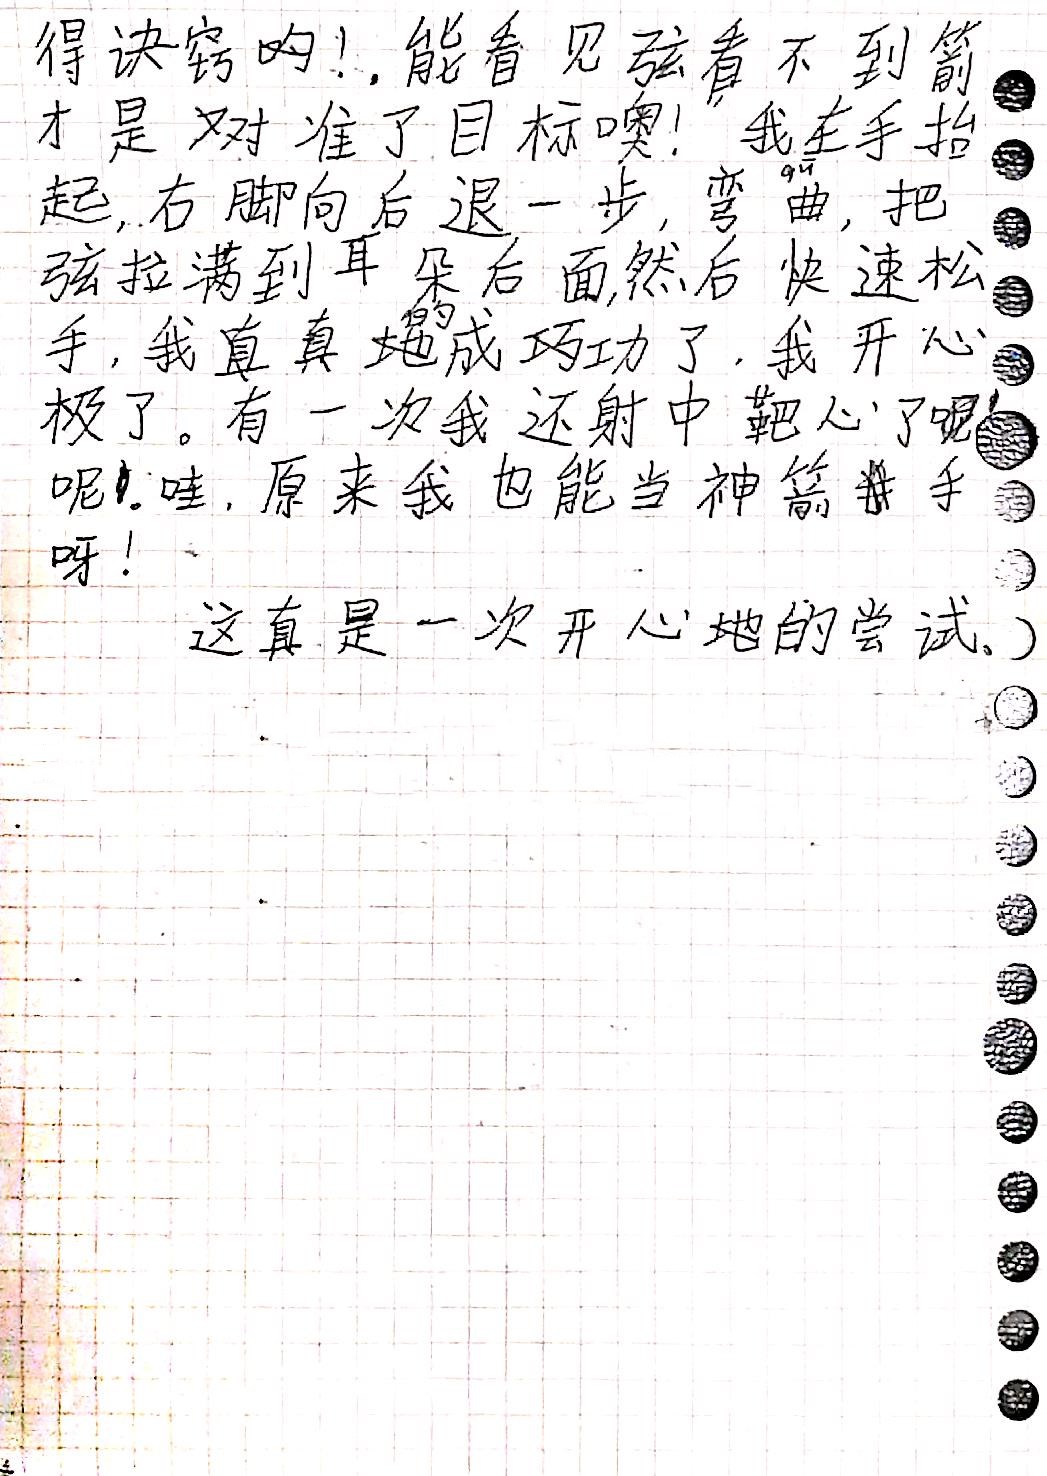 得诀窍哟！.能看见弦看不到箭
才是对准了目标噢！”我左手抬
起,右脚向后退一步,弯曲,把
弦拉满到耳朵后面,然后快速松
手,我真真的地成巧功了.我开心
极了。有一次我还射中靶心了呢！
呢！.哇,原来我也能当神箭手
呀！
这真是一次开心地的尝试。）